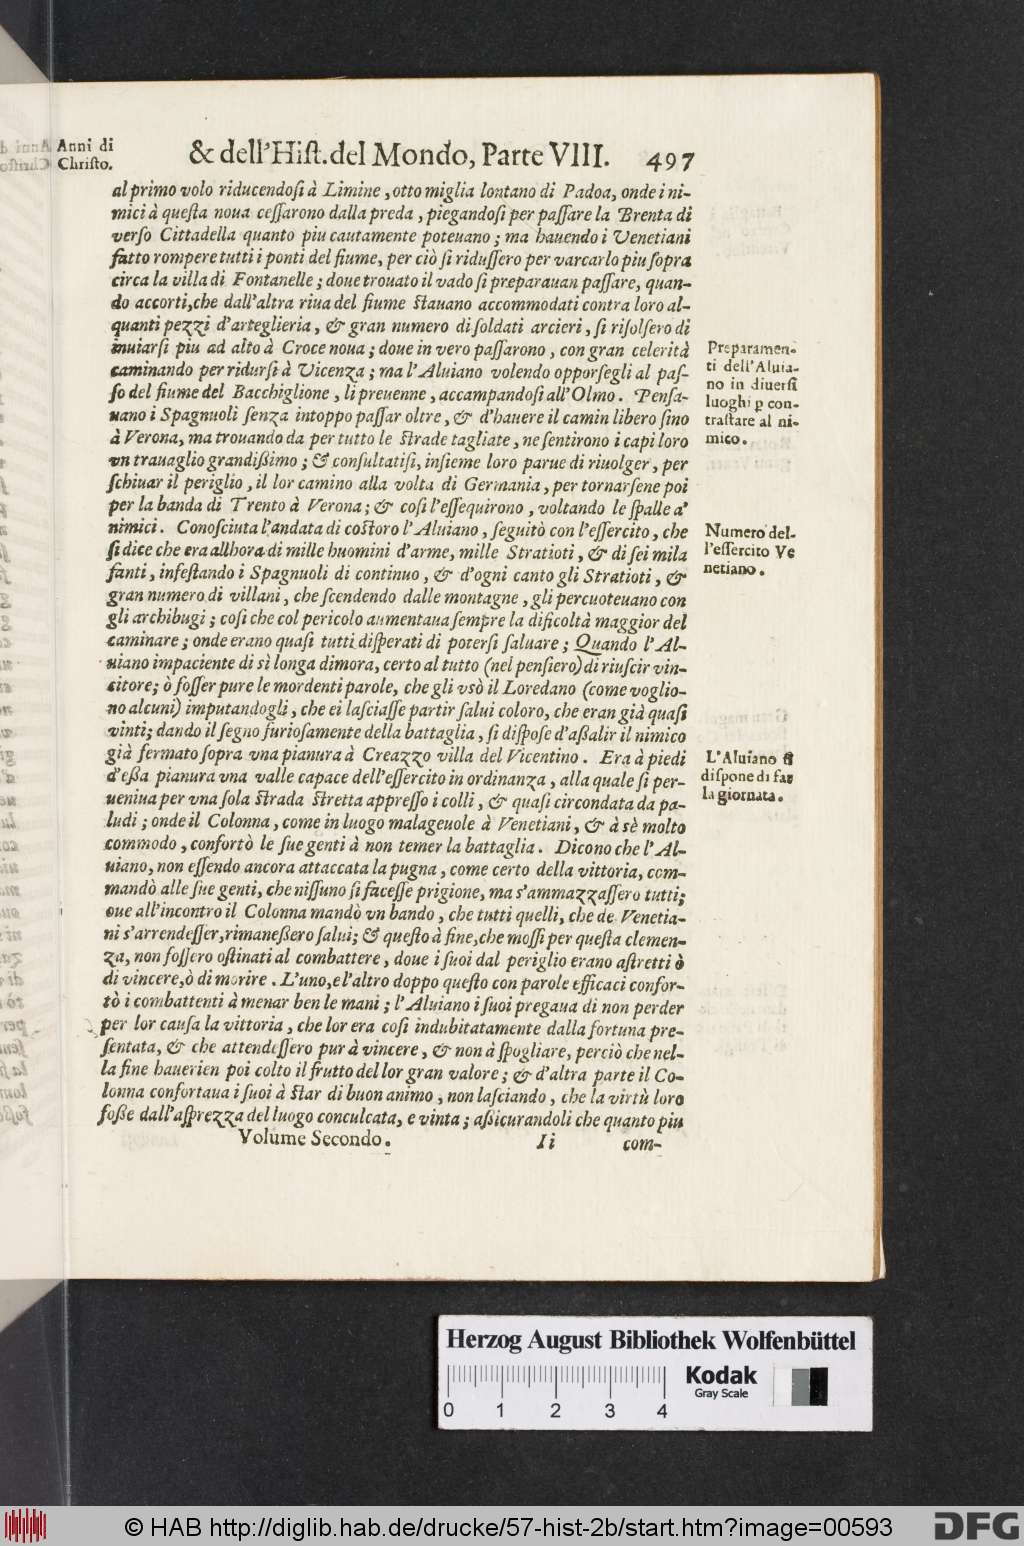 Anni di
Christo.
& dell'Hiſt. del Mondo, Parte VIII. 497
al primo volo riducendoſi à Limine, otto miglia lontano di Padoa, onde i ni-
mici à queſta noua ceſſarono dalla preda, piegandoſi per paſſare la Brenta di
verſo Cittadella quanto piu cautamente poteuano; ma hauendo i Venetiani
fatto rompere tutti i ponti del fiume, per ciò ſi riduſſero per varcarlo piu ſopra
circa la villa di Fontanelle; doue trouato il vado ſi preparauan paſſare, quan-
do accorti, che dall'altra riua del fiume ſtauano accommodati contra loro al-
quanti pezzi d'arteglieria, & gran numero di ſoldati arcieri, ſi riſolſero di
inuiarſi piu ad alto à Croce noua; doue in vero paſſarono, con gran celerità
caminando per ridurſi à Vicenza; ma l'Aluiano volendo opporſegli al paſ-
ſo del fiume del Bacchiglione, li preuenne, accampandoſi all'Olmo. Penſa-
uano i Spagnuoli ſenza intoppo paſſar oltre, & d'hauere il camin libero ſino
à Verona, ma trouando da per tutto le ſtrade tagliate, ne ſentirono i capi loro
vn trauaglio grandißimo; & conſultatiſi, inſieme loro parue di riuolger, per
ſchiuar il periglio, il lor camino alla volta di Germania, per tornarſene poi
per la banda di Trento à Verona; & coſi l'eſſequirono, voltando le ſpalle a'
nimici. Conoſciuta l'andata di coſtoro l'Aluiano, ſeguitò con l'eſſercito, che
ſi dice che era allhora di mille huomini d'arme, mille Stratioti, & di ſei mila
fanti, infeſtando i Spagnuoli di continuo, & d'ogni canto gli Stratioti, &
gran numero di villani, che ſcendendo dalle montagne, gli percuoteuano con
gli archibugi; coſi che col pericolo aumentaua ſempre la dificoltà maggior del
caminare; onde erano quaſi tutti diſperati di poterſi ſaluare; Quando l'Al-
uiano impaciente di sì longa dimora, certo al tutto (nel penſiero) di riuſcir vin-
citore; ò foſſer pure le mordenti parole, che gli vsò il Loredano (come voglio-
no alcuni) imputandogli, che ei laſciaſſe partir ſalui coloro, che eran già quaſi
vinti; dando il ſegno furioſamente della battaglia, ſi diſpoſe d'aßalir il nimico
già fermato ſopra vna pianura à Creazzo villa del Vicentino. Era à piedi
d'eßa pianura vna valle capace dell'eſſercito in ordinanza, alla quale ſi per-
ueniua per vna ſola ſtrada ſtretta appreſſo i colli, & quaſi circondata da pa-
ludi; onde il Colonna, come in luogo malageuole à Venetiani, & à sè molto
commodo, confortò le ſue genti à non temer la battaglia. Dicono che l'Al-
uiano, non eſſendo ancora attaccata la pugna, come certo della vittoria, com-
mandò alle ſue genti, che niſſuno ſi faceſſe prigione, ma s'ammazzaſſero tutti;
oue all'incontro il Colonna mandò vn bando, che tutti quelli, che de Venetia-
ni s'arrendeſſer, rimaneßero ſalui; & queſto à fine, che moſſi per queſta clemen-
za, non foſſero oſtinati al combattere, doue i ſuoi dal periglio erano aſtretti ò
di vincere, ò di morire. L'uno, e l'altro doppo queſto con parole efficaci confor-
tò i combattenti à menar ben le mani; l'Aluiano i ſuoi pregaua di non perder
per lor cauſa la vittoria, che lor era coſi indubitatamente dalla fortuna pre-
ſentata, & che attendeſſero pur à vincere, & non à ſpogliare, perciò che nel-
la fine hauerien poi colto il frutto del lor gran valore; & d'altra parte il Co-
lonna confortaua i ſuoi à ſtar di buon animo, non laſciando, che la virtù loro
foße dall'aſprezza del luogo conculcata, e vinta; aßicurandoli che quanto piu
Volume Secondo. Ii com-
Preparamen-
ti dell'Aluia-
no in diuerſi
luoghi p con-
traſtare al ni-
mico.
Numero del-
l'eſſercito Ve
netiano.
L'Aluiano ſi
diſpone di far
la giornata.
Herzog August Bibliothek Wolfenbüttel
Kodak
Gray Scale
0 1 2 3 4
© HAB http://diglib.hab.de/drucke/57-hist-2b/start.htm?image=00593
DFG